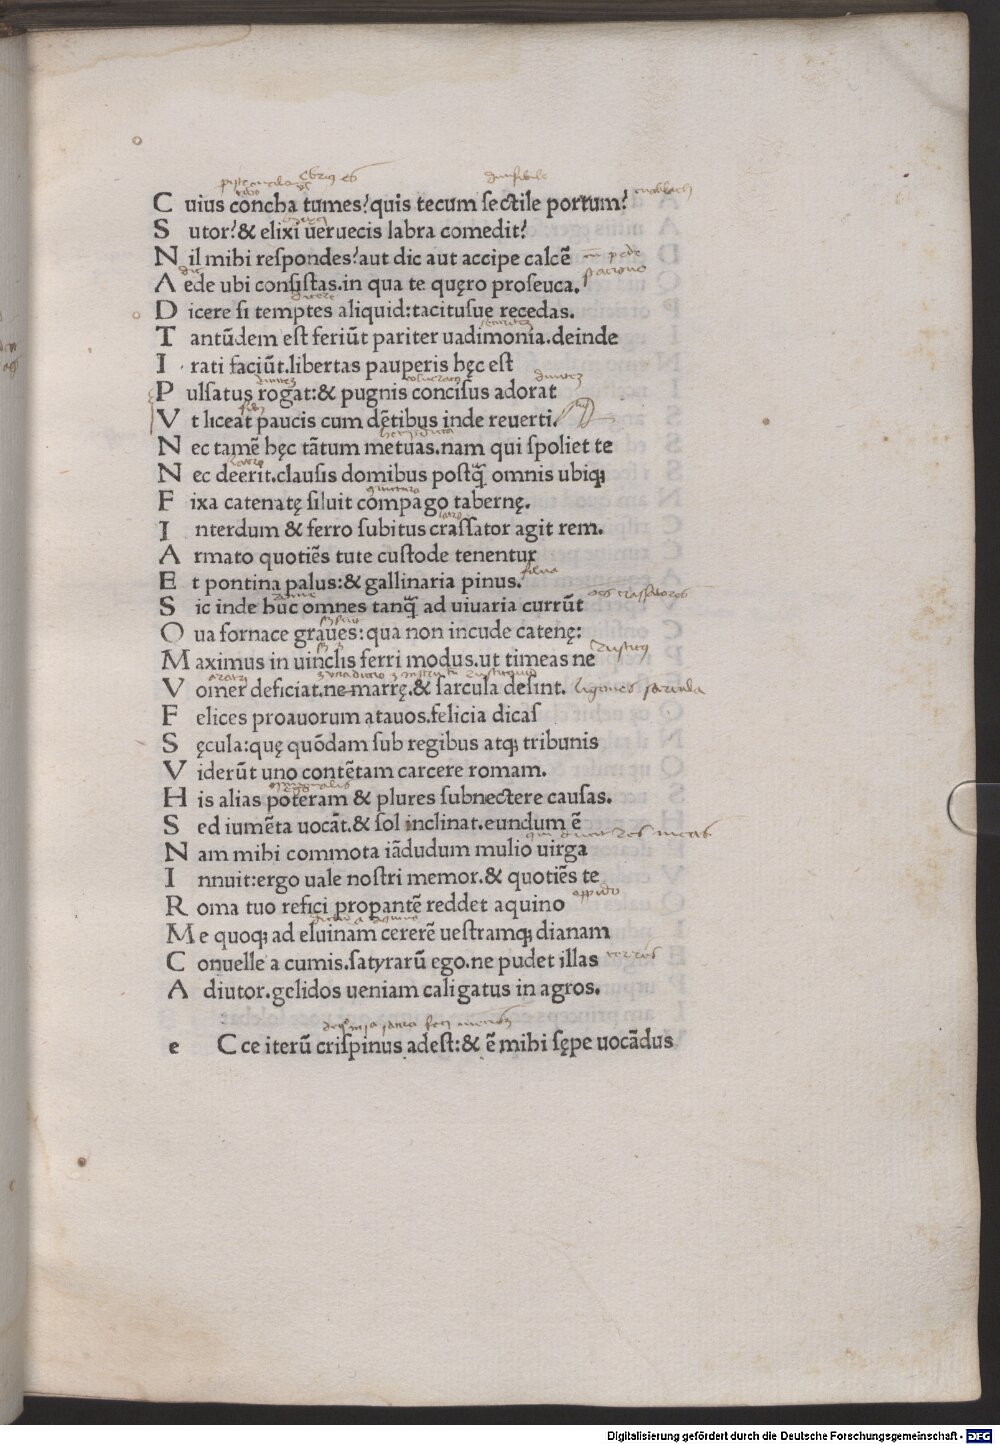 C uius concha tumes? quis tecum sectile porrum?
S utor? & elixi ueruecis labra comedit?
N il mihi respondes? aut dic aut accipe calcē
A ede ubi consistas. in qua te quęro proseuca.
D icere si temptes aliquid: tacitusue recedas.
T antūdem est feriūt pariter uadimonia. deinde
I rati faciūt. libertas pauperis hęc est
P ulsatus rogat: & pugnis concisus adorat
V t liceat paucis cum dētibus inde reuerti.
N ec tamē hęc tātum metuas. nam qui spoliet te
N ec deerit. clausis domibus postq̄ omnis ubiq;
F ixa catenatę siluit compago tabernę.
I nterdum & ferro subitus crassator agit rem.
A rmato quotiēs tute custode tenentur
E t pontina palus: & gallinaria pinus. silua
S ic inde huc omnes tanq̄ ad uiuaria currūt
Q ua fornace graues: qua non incude catenę:
M aximus in uinclis ferri modus. ut timeas ne
V omer deficiat. ne marrę. & sarcula desint.
F elices proauorum atauos. felicia dicas
S ęcula: quę quōdam sub regibus atq; tribunis
V iderūt uno contētam carcere romam.
H is alias poteram & plures subnectere causas.
S ed iumēta uocāt. & sol inclinat. eundum ē
N am mihi commota iādudum mulio uirga
I nnuit: ergo uale nostri memor. & quotiēs te
R oma tuo refici propantē reddet aquino oppido
M e quoq; ad eluinam cererē uestramq; dianam
C onuelle a cumis. satyrarū ego. ne pudet illas
A diutor. gelidos ueniam caligatus in agros.
e C ce iterū crispinus adest: & ē mihi sępe uocādus
Digitalisierung gefördert durch die Deutsche Forschungsgemeinschaft - DFG